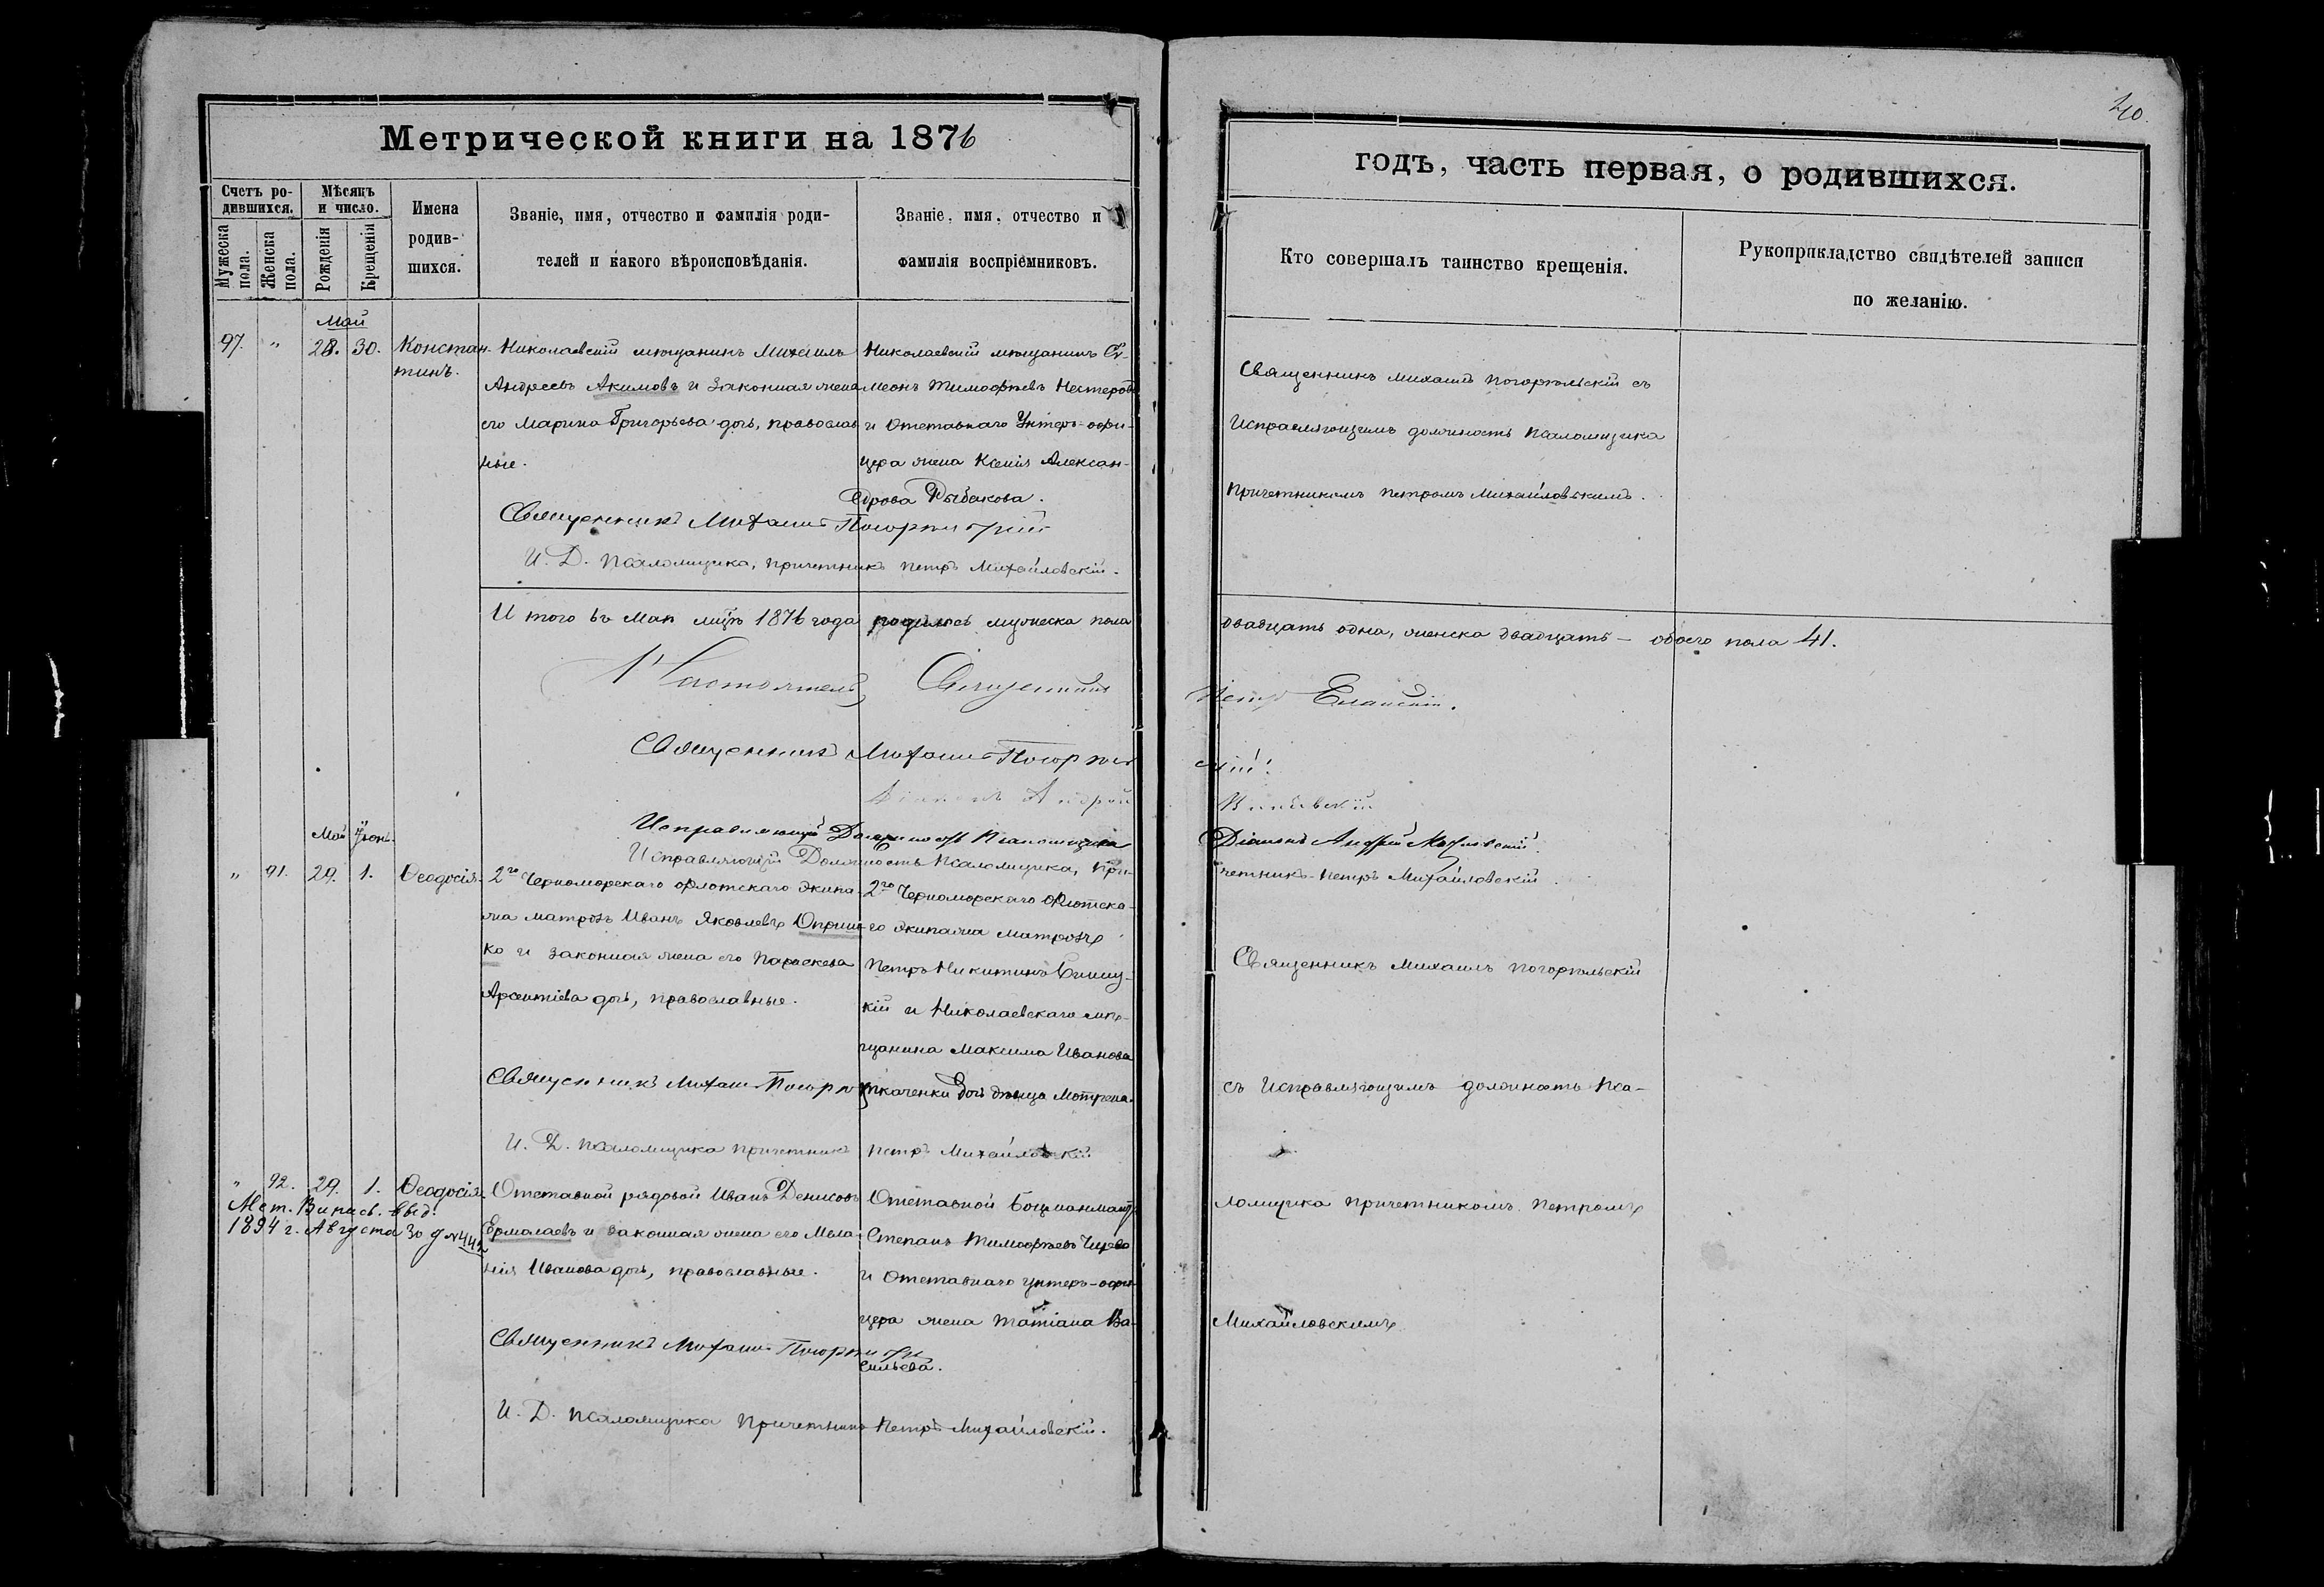 40.
Метрической книги на 1876
годъ, часть первая, о родившихся.
Счетъ ро-
дившихся.
Мужеска
пола.
Женска
пола.
Мѣсяцъ
и число.
Рожденія
Крещенія
Имена
родив-
шихся.
Званіе, имя, отчество и фамилія роди-
телей и какого вѣроисповѣданія.
Званіе, имя, отчество и
фамилія воспріемниковъ.
Кто совершалъ таинство крещенія.
Рукоприкладство свидѣтелей записи
по желанію.
Май
97. " 28. 30. Констан-
тинъ.
Николаевскій мѣщанинъ Михаилъ
Андреевъ Акимовъ и законная жена
его Марина Григорьева дочь, православ
ные.
Николаевскій мѣщанинъ Си-
меонъ Тимофѣевъ Нестеровъ
и Отставнаго Унтеръ-офи-
цера жена Ксенія Алексан-
дрова Рыбакова.
Священникъ Михаилъ Погорѣльскій съ
Исправляющимъ должность Псаломщика
Причетникомъ Петромъ Михайловскимъ.
Священникъ Михаилъ Погорѣльскій
И. Д. Псаломщика, причетникъ Петръ Михайловскій.
И того въ Маѣ мцѣ 1876 года родилось мужеска пола
двадцать одна, женска двадцать - обоего пола 41.
Настоятель Священникъ
Петръ Еланскій.
Священникъ Михаилъ Погорѣль
скій.
Діаконъ Андрей
Исправляющій Должность Псаломщика
Діаконъ Андрей
Исправляющій Должность Псаломщика, При-
четникъ Петръ Михайловскій.
Май Іюнь
" 91. 29. 1. Ѳеодосія.
2го Черноморскаго флотскаго экипа-
жа матросъ Иванъ Яковлевъ Оприш
ко и законная жена его Параскева
Арсентіева дочь, православные.
2го Черноморскаго Флотска-
го экипажа матросъ
Петръ Никитинъ
кій и Николаевскаго мѣ-
щанина Максима Иванова
Ткаченки дочь дѣвица Мотрена.
Священникъ Михаилъ Погорѣльскій
съ Исправляющимъ должность Пса-
ломщика причетникомъ Петромъ
Михайловскимъ
Священникъ Михаилъ Погорѣ
И. Д. Псаломщика причетникъ Петръ Михайловскій
" 92. 29. 1. Ѳеодосія.
Мет. Выпись выд.
1894 г. Августа 30 д №442
Отставной рядовой Иванъ Денисовъ
Ермалаевъ и законная жена его Мела-
нія Иванова дочь, православные.
Отставной Боцманматъ
Степанъ Тимофѣевъ
и Отставнаго унтеръ-офи-
цера жена Татіана Ва-
сильева.
Священникъ Михаилъ Погорѣльскій
И. Д. Псаломщика Причетникъ Петръ Михайловскій.